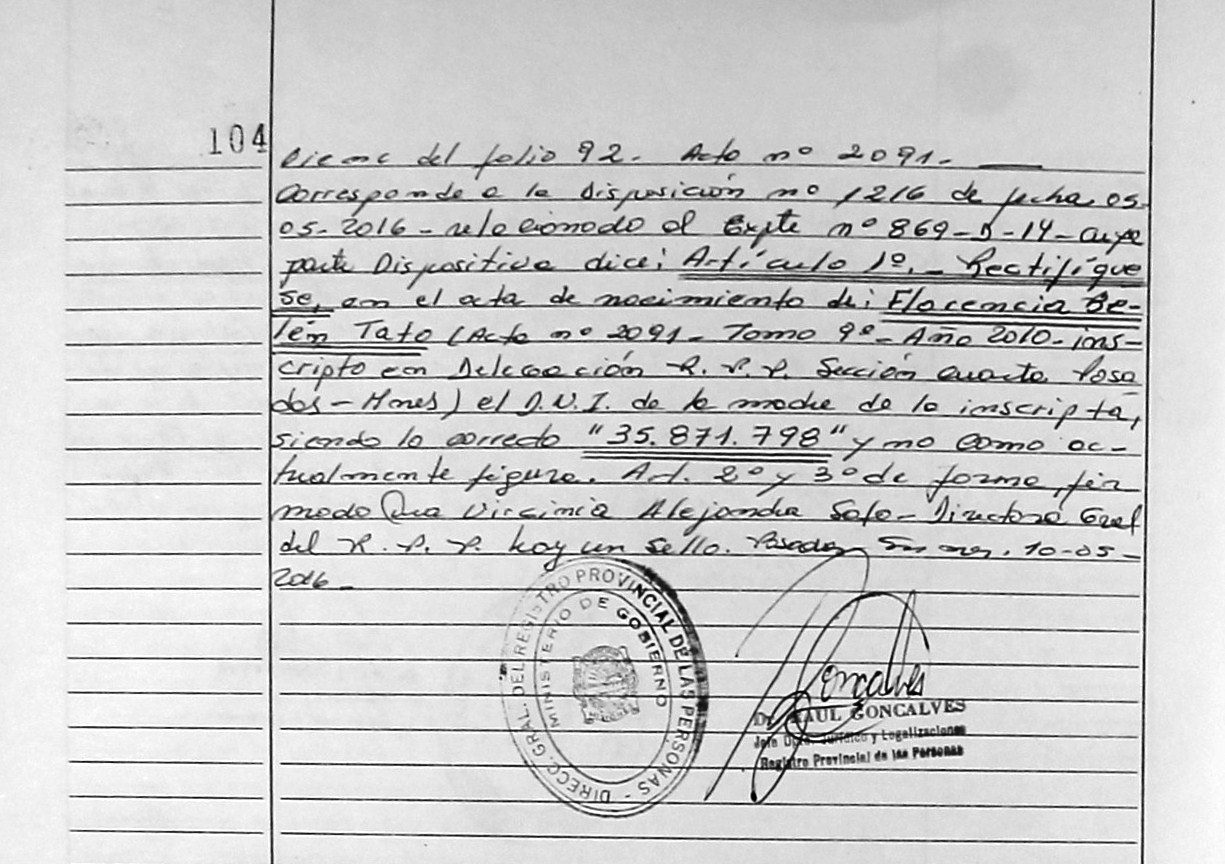 104
Viene del folio 92. Acta nº 2091.
Corresponde a la Disposición nº 1216 de fecha 05-
05-2016 - relacionado al Expte nº 869-D-14 - cuya
parte Dispositiva dice: Artículo 1º.- Rectifíque
se, en el acta de nacimiento de: Florencia Be-
lén Tato (Acta nº 2091 - Tomo 9º - Año 2010 - ins-
cripta en Delegación R.P.P. Sección cuarta Posa
das - Mnes) el D.N.I. de la madre de la inscripta,
siendo lo correcto "35.871.798" y no como ac-
tualmente figura. Art. 2º y 3º de forma, fir
mado Dra Virginia Alejandra Sofo - Directora Gral
del R.P.P. hay un sello. Posadas, 10-05-
2016 -
DIRECC. GRAL. DEL REGISTRO PROVINCIAL DE LAS PERSONAS -
MINISTERIO DE GOBIERNO
Goncalves
Dr. RAUL GONCALVES
Jefe Dpto. Jurídico y Legalizaciones
Registro Provincial de las Personas